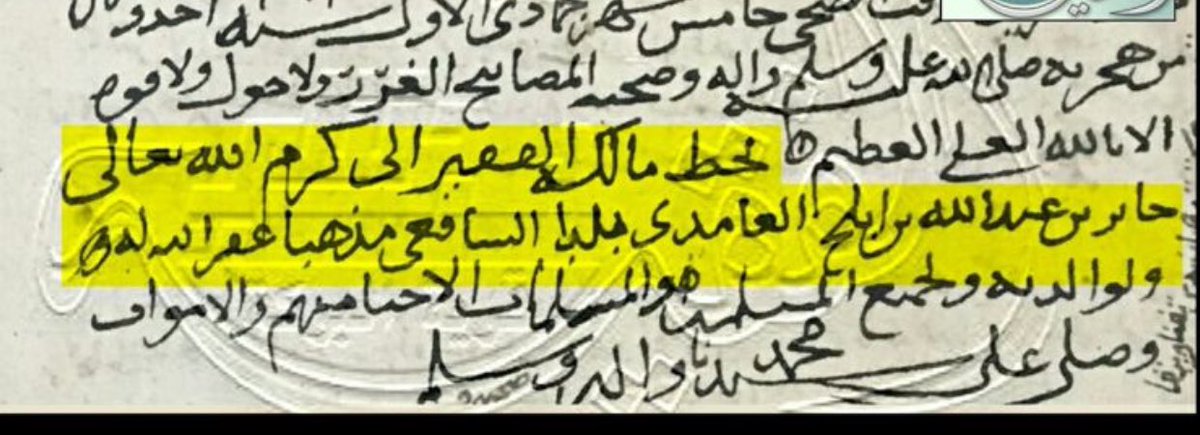 ضحى خامس شهر جمادى الاول سنه احدو
من هجرته صلى الله عليه وسلم واله وصحبه المصابيح الغرر ولا حول ولا قوه
الا بالله العلي العظيم بخط مالكه الفقير الى كرم الله تعالى
جابر بن عبدالله بن الغامدي بلدا الشافعي مذهبا غفر الله له
ولوالديه ولجميع المسلمين والمسلمات الاحيا منهم والاموات
وصلى على سيدنا محمد واله وسلم